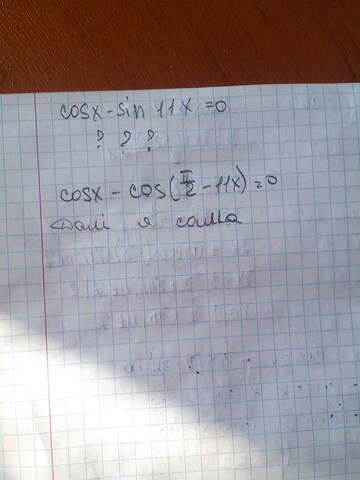 cosx - sin 11x = 0
? ? ?
cosx - cos(π/2 - 11x) = 0
Далі я сама